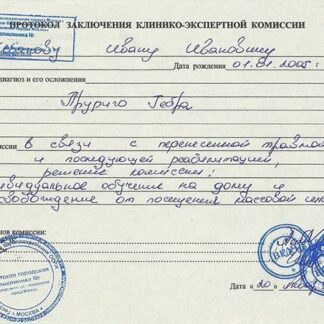 ПРОТОКОЛ ЗАКЛЮЧЕНИЯ КЛИНИКО-ЭКСПЕРТНОЙ КОМИССИИ
Ивану Ивановичу
Дата рождения 01.01.2005
диагноз и его осложнения
Пруриго Гебра
в связи с перенесенной травмой
и последующей реабилитацией,
решение комиссии:
индивидуальное обучение на дому и
освобождение от посещения массовой
членов комиссии:
городская
поликлиника №
МОСКВА
Дата «20»